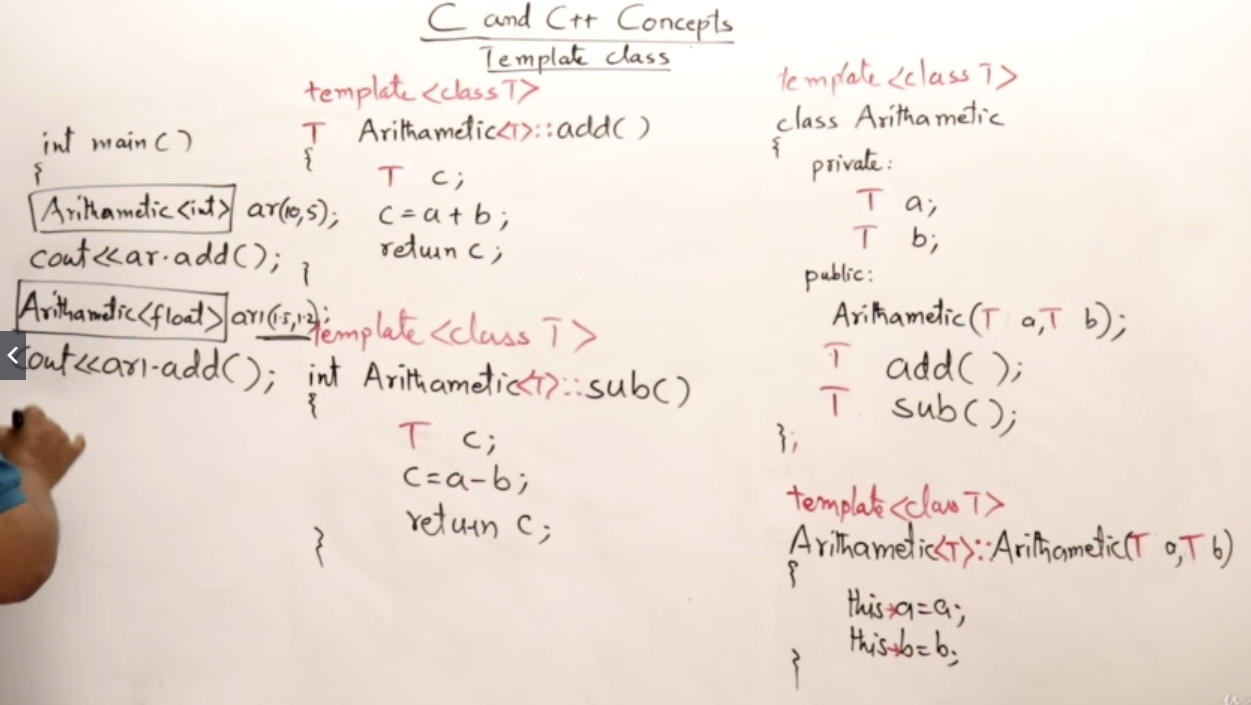 C and C++ Concepts
Template class
int main()
{
Arithametic<int> ar(10,5);
cout<<ar.add();
Arithametic<float> ar1(1.5,1.2);
cout<<ar1.add();
template<class T>
T Arithametic<T>::add()
{
T c;
c=a+b;
return c;
}
template<class T>
int Arithametic<T>::sub()
{
T c;
c=a-b;
return c;
}
template<class T>
class Arithametic
{
private:
T a;
T b;
public:
Arithametic(T a,T b);
T add();
T sub();
};
template<class T>
Arithametic<T>::Arithametic(T a,T b)
{
this→a=a;
this→b=b;
}